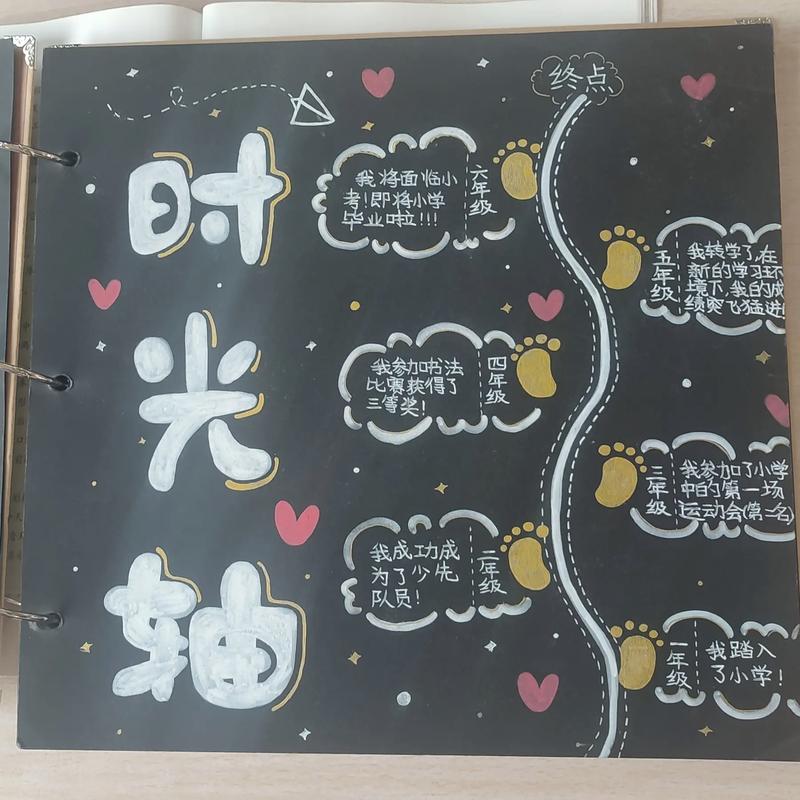 时光轴
终点
六年级
我将面临小
考!即将小学
毕业啦!!!
五年级
我转学了,在
新的学习环
境下,我的成
绩突飞猛进
四年级
我参加书法
比赛获得了
三等奖!
三年级
我参加了小学
中的第一场
运动会(第二名)
二年级
我成功成
为了少先
队员!
一年级
我踏入
了小学!